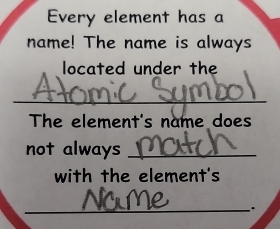 Every element has a
name! The name is always
located under the
Atomic Symbol
The element's name does
not always match
with the element's
Name.